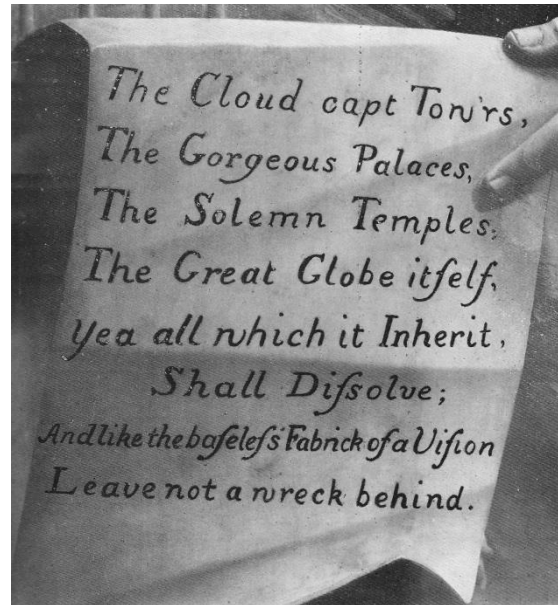 The Cloud capt Tow'rs,
The Gorgeous Palaces,
The Solemn Temples,
The Great Globe itſelf,
Yea all which it Inherit,
Shall Diſsolve;
And like the baſeleſs Fabrick of a Viſion
Leave not a wreck behind.